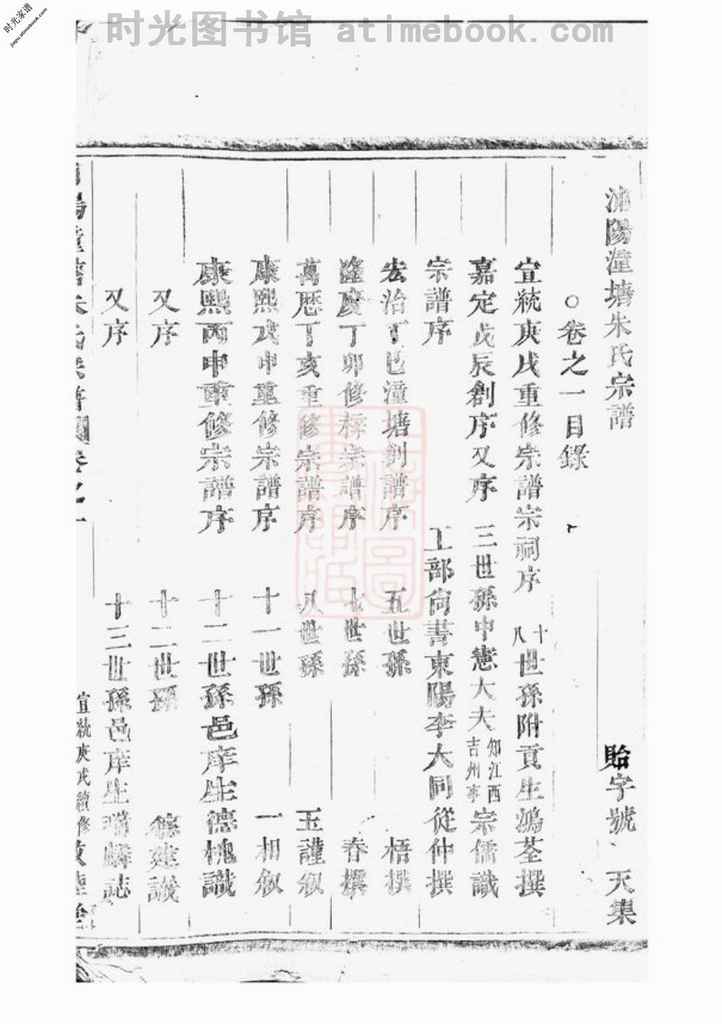 时光图书馆 atimebook.com
时光家谱
jiapu.atimebook.com
浦陽潼塘朱氏宗譜 貽字號 天集
○卷之一目錄
宣統庚戌重修宗譜宗祠序 十八世孫附貢生鴻荃撰
嘉定戊辰創序又序 三世孫中憲大夫知江西吉州事宗儒識
宗譜序 工部尙書東陽李大同從仲撰
宏治丁巳潼塘創譜序 五世孫 梧撰
隆慶丁卯修梓宗譜序 七世孫 春撰
萬歷丁亥重修宗譜序 八世孫 玉謹叙
康熙戊申重修宗譜序 十一世孫 一相叙
康熙丙申重修宗譜序 十二世孫邑庠生德槐識
又序 十二世孫 德建識
又序 十三世孫邑庠生 麟誌
陽潼塘朱氏宗譜 卷之一 宣統庚戌續修 敦睦堂